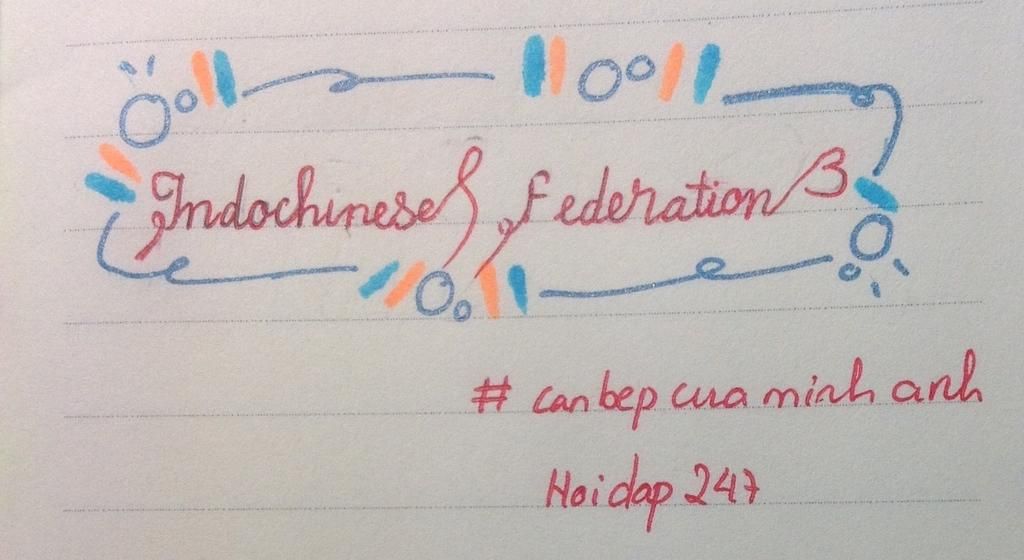 Indochinese Federation
# canbep cua minh anh
Hoidap 247